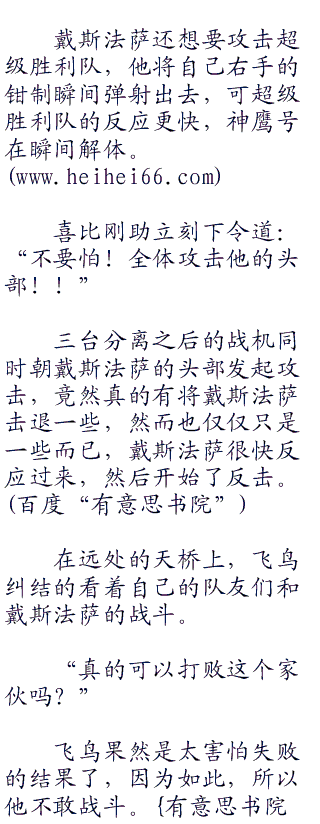 戴斯法萨还想要攻击超
级胜利队，他将自己右手的
钳制瞬间弹射出去，可超级
胜利队的反应更快，神鹰号
在瞬间解体。
(www.heihei66.com)
喜比刚助立刻下令道：
“不要怕！全体攻击他的头
部！！”
三台分离之后的战机同
时朝戴斯法萨的头部发起攻
击，竟然真的有将戴斯法萨
击退一些，然而也仅仅只是
一些而已，戴斯法萨很快反
应过来，然后开始了反击。
(百度“有意思书院”)
在远处的天桥上，飞鸟
纠结的看着自己的队友们和
戴斯法萨的战斗。
“真的可以打败这个家
伙吗？”
飞鸟果然是太害怕失败
的结果了，因为如此，所以
他不敢战斗。{有意思书院